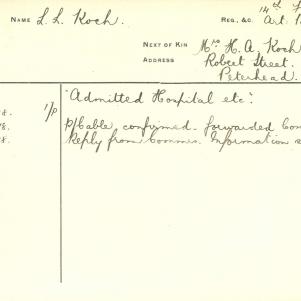 NAME L. L. Koch. REG., &C. 14th F
Art. 1
NEXT OF KIN Mrs H. A Koch
ADDRESS Robert Street.
Peterhead.
"Admitted Hospital etc".
8. 1/P P/Cable confirmed. forwarded Com
8. Reply from Commrs. Information s
8.